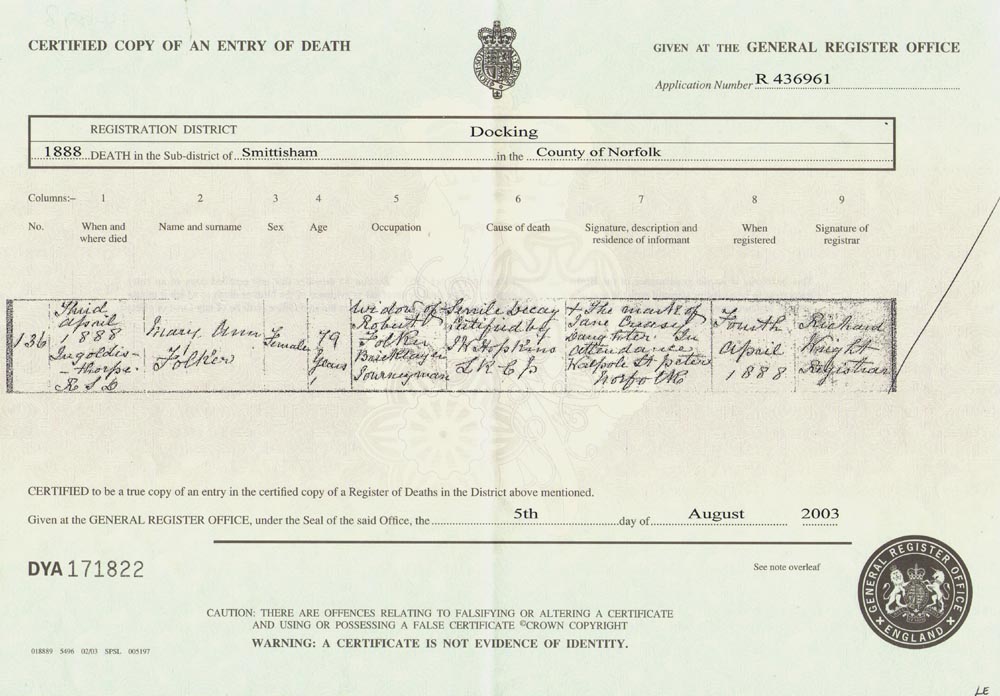 CERTIFIED COPY OF AN ENTRY OF DEATH
GIVEN AT THE GENERAL REGISTER OFFICE
Application Number R 436961
REGISTRATION DISTRICT Docking
1888 DEATH in the Sub-district of Smittisham in the County of Norfolk
Columns:– 1 2 3 4 5 6 7 8 9
No.
When and
where died
Name and surname
Sex
Age
Occupation
Cause of death
Signature, description and
residence of informant
When
registered
Signature of
registrar
136
Third
April
1888
Ingoldis-
-thorpe
R S D
Mary Ann
Folker
Female
79
Years
Widow of
Robert
Folker
Bricklayer
Journeyman
Senile Decay
Certified by
Hopkins
L R C P
The mark of
Jane Creasey
Daughter In
attendance
Walpole St peter
Norfolk
Fourth
April
1888
Richard
Wright
Registrar
CERTIFIED to be a true copy of an entry in the certified copy of a Register of Deaths in the District above mentioned.
Given at the GENERAL REGISTER OFFICE, under the Seal of the said Office, the 5th day of August 2003
DYA 171822
See note overleaf
CAUTION: THERE ARE OFFENCES RELATING TO FALSIFYING OR ALTERING A CERTIFICATE
AND USING OR POSSESSING A FALSE CERTIFICATE ©CROWN COPYRIGHT
WARNING: A CERTIFICATE IS NOT EVIDENCE OF IDENTITY.
GENERAL REGISTER OFFICE
ENGLAND
018889 5496 02/03 SPSL 005197
LE